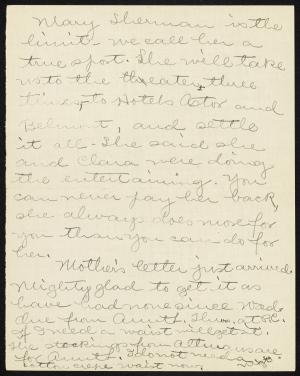 Mary Sherman is the
limit - we call her a
true sport. She will take
us to the theater three
times, to Hotels Astor and
Belmont, and settle
it all. She said she
and Clara were doing
the entertaining. You
can never pay her back,
she always does more for
you than you can do for
her.
Mother's letter just arrived.
Mighty glad to get it as
have had none since Wed.
due from Aunt F. Thurs. at P.C.
If I need a waist will get it.
The stockings from Altmans are
for Aunt F. I do not need a
cotton crepe waist now.